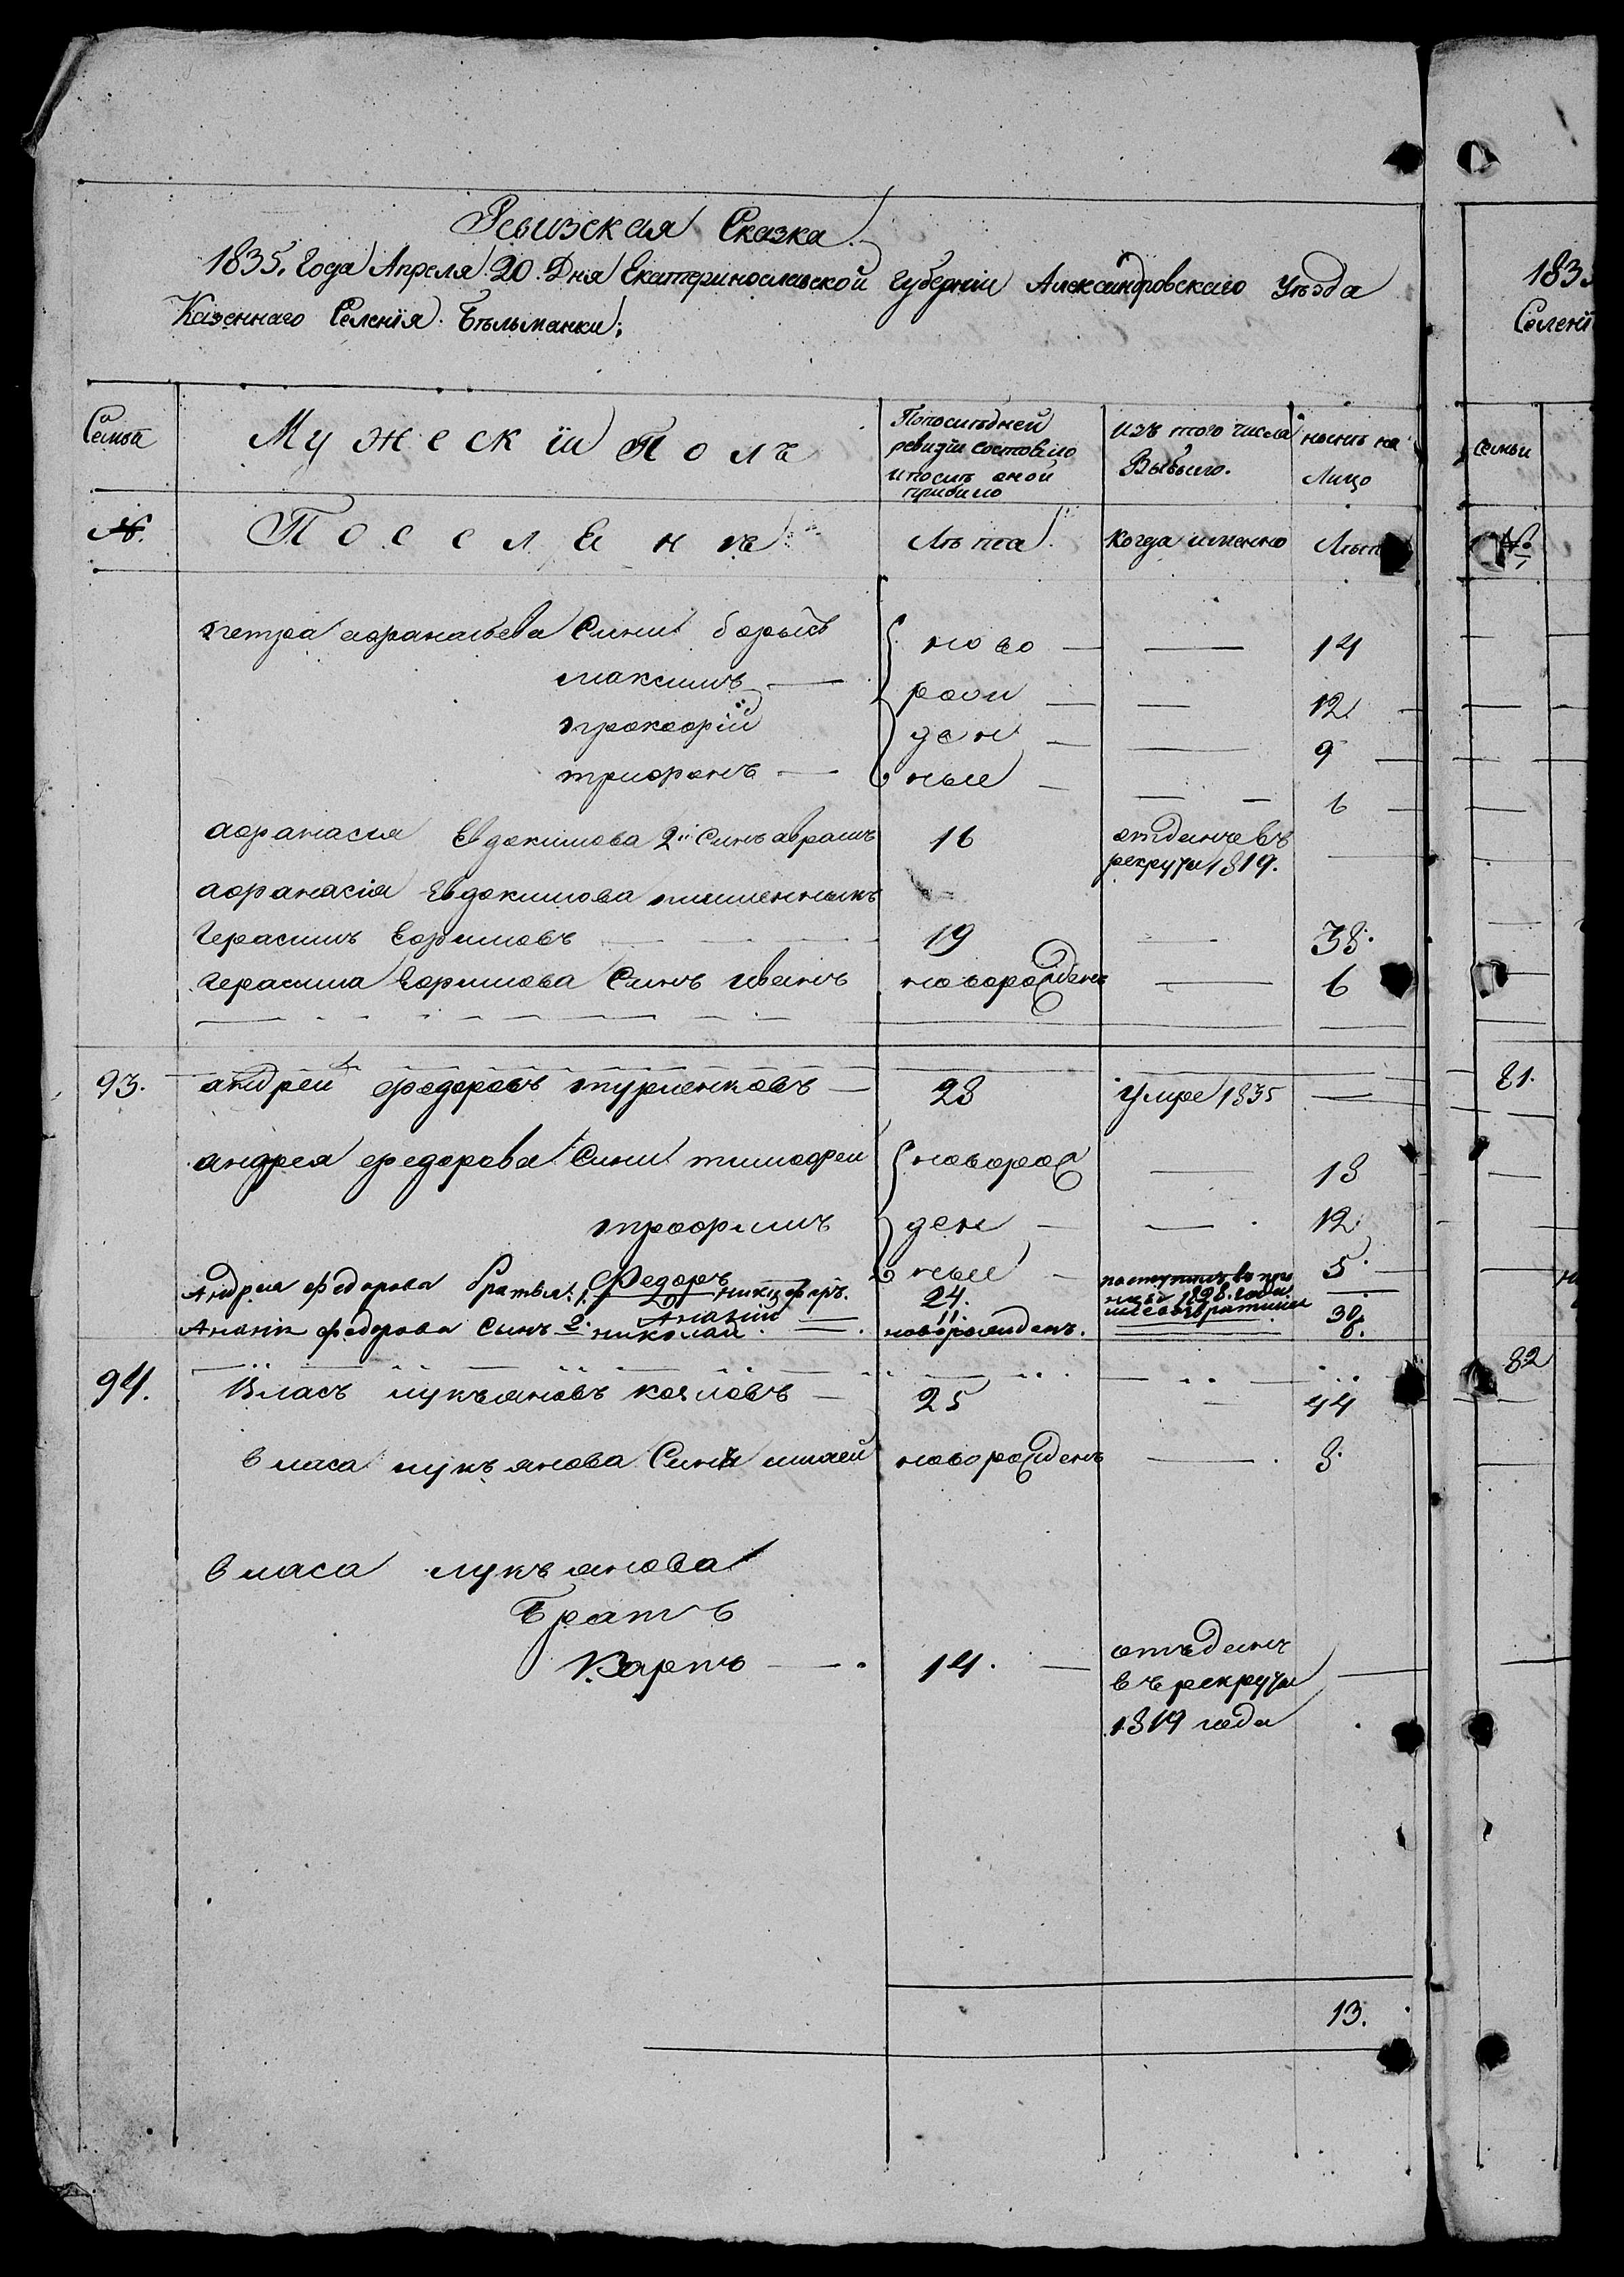 Ревизская Сказка
1835. Года Апреля 20. Дня Екатеринославской Губернии Александровскаго Уѣзда
Казеннаго Селенія Бѣльманки;
Семьи
Мужескій Полъ
По последней ревизіи состояло и после оной прибыло
изъ того числа Выбыло.
нынѣ на Лицо
№.
Поселянѣ
Лѣта.
когда именно
Лѣта
петра афанасьева Сини борысъ ново — — 14
максимъ — рож — — 12
прокофій ден — — 9
трифонъ — ные — — 6
афанасия Евдокимова 2й Синъ аврамъ 16 отданъ въ рекруты 1819.
афанасія Евдокимова племенныкъ
Герасимъ Ефимовъ 19 — 38.
герасима Ефимова Синъ иванъ новорожденъ — 6
93. андрей федоровъ — 28 умре 1835 —
андрея федорова Сини тимофей новорож — 18
трофимъ ден — — 12
Федоръ ные — 5.
Андрея Федорова братья: 1. никифоръ. 24. 1828. года —
2. Ананий 11. 30.
Ананія федорова сынъ николай. — новорожденъ. 8.
94. Власъ лукъяновъ козловъ — 25 — 44
власа лукъянова Синъ новорожденъ — 8.
власа лукъянова
Братъ
Карпъ — 14. — отъданъ въ рекруты 1819 года —
13.
1835
Селені
семьи
№.
81.
82